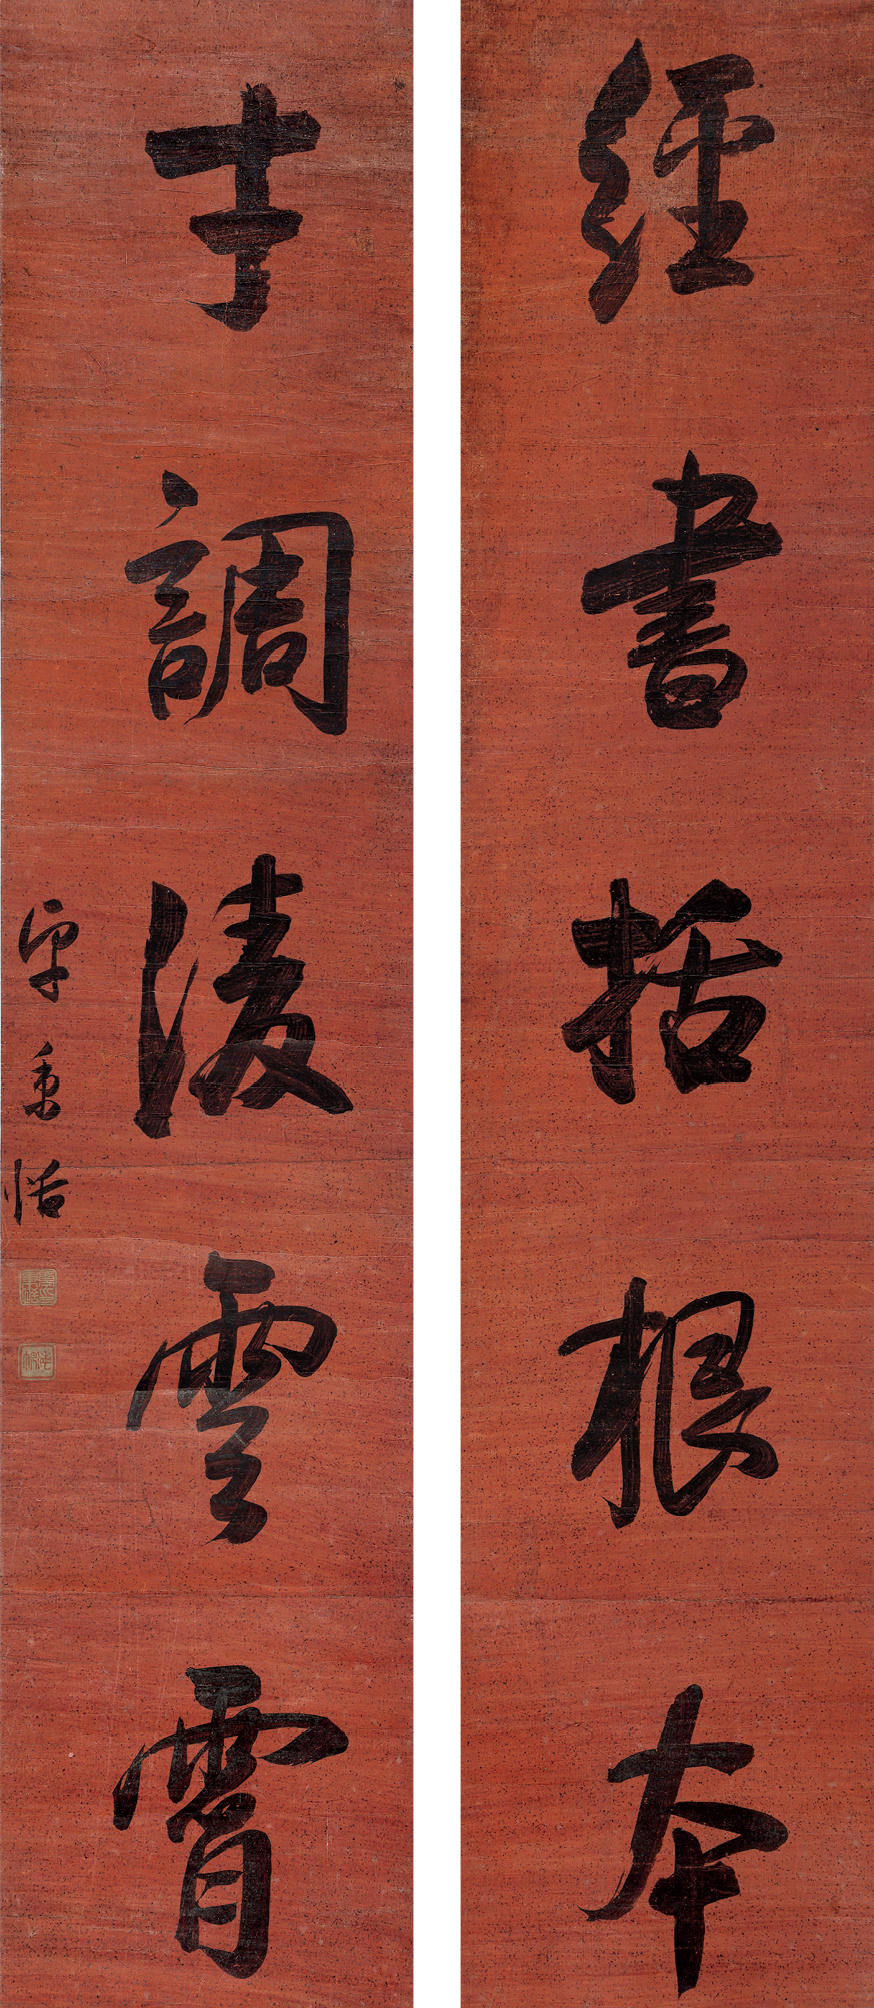 經書括根本
才調凌雲霄
卓秉恬